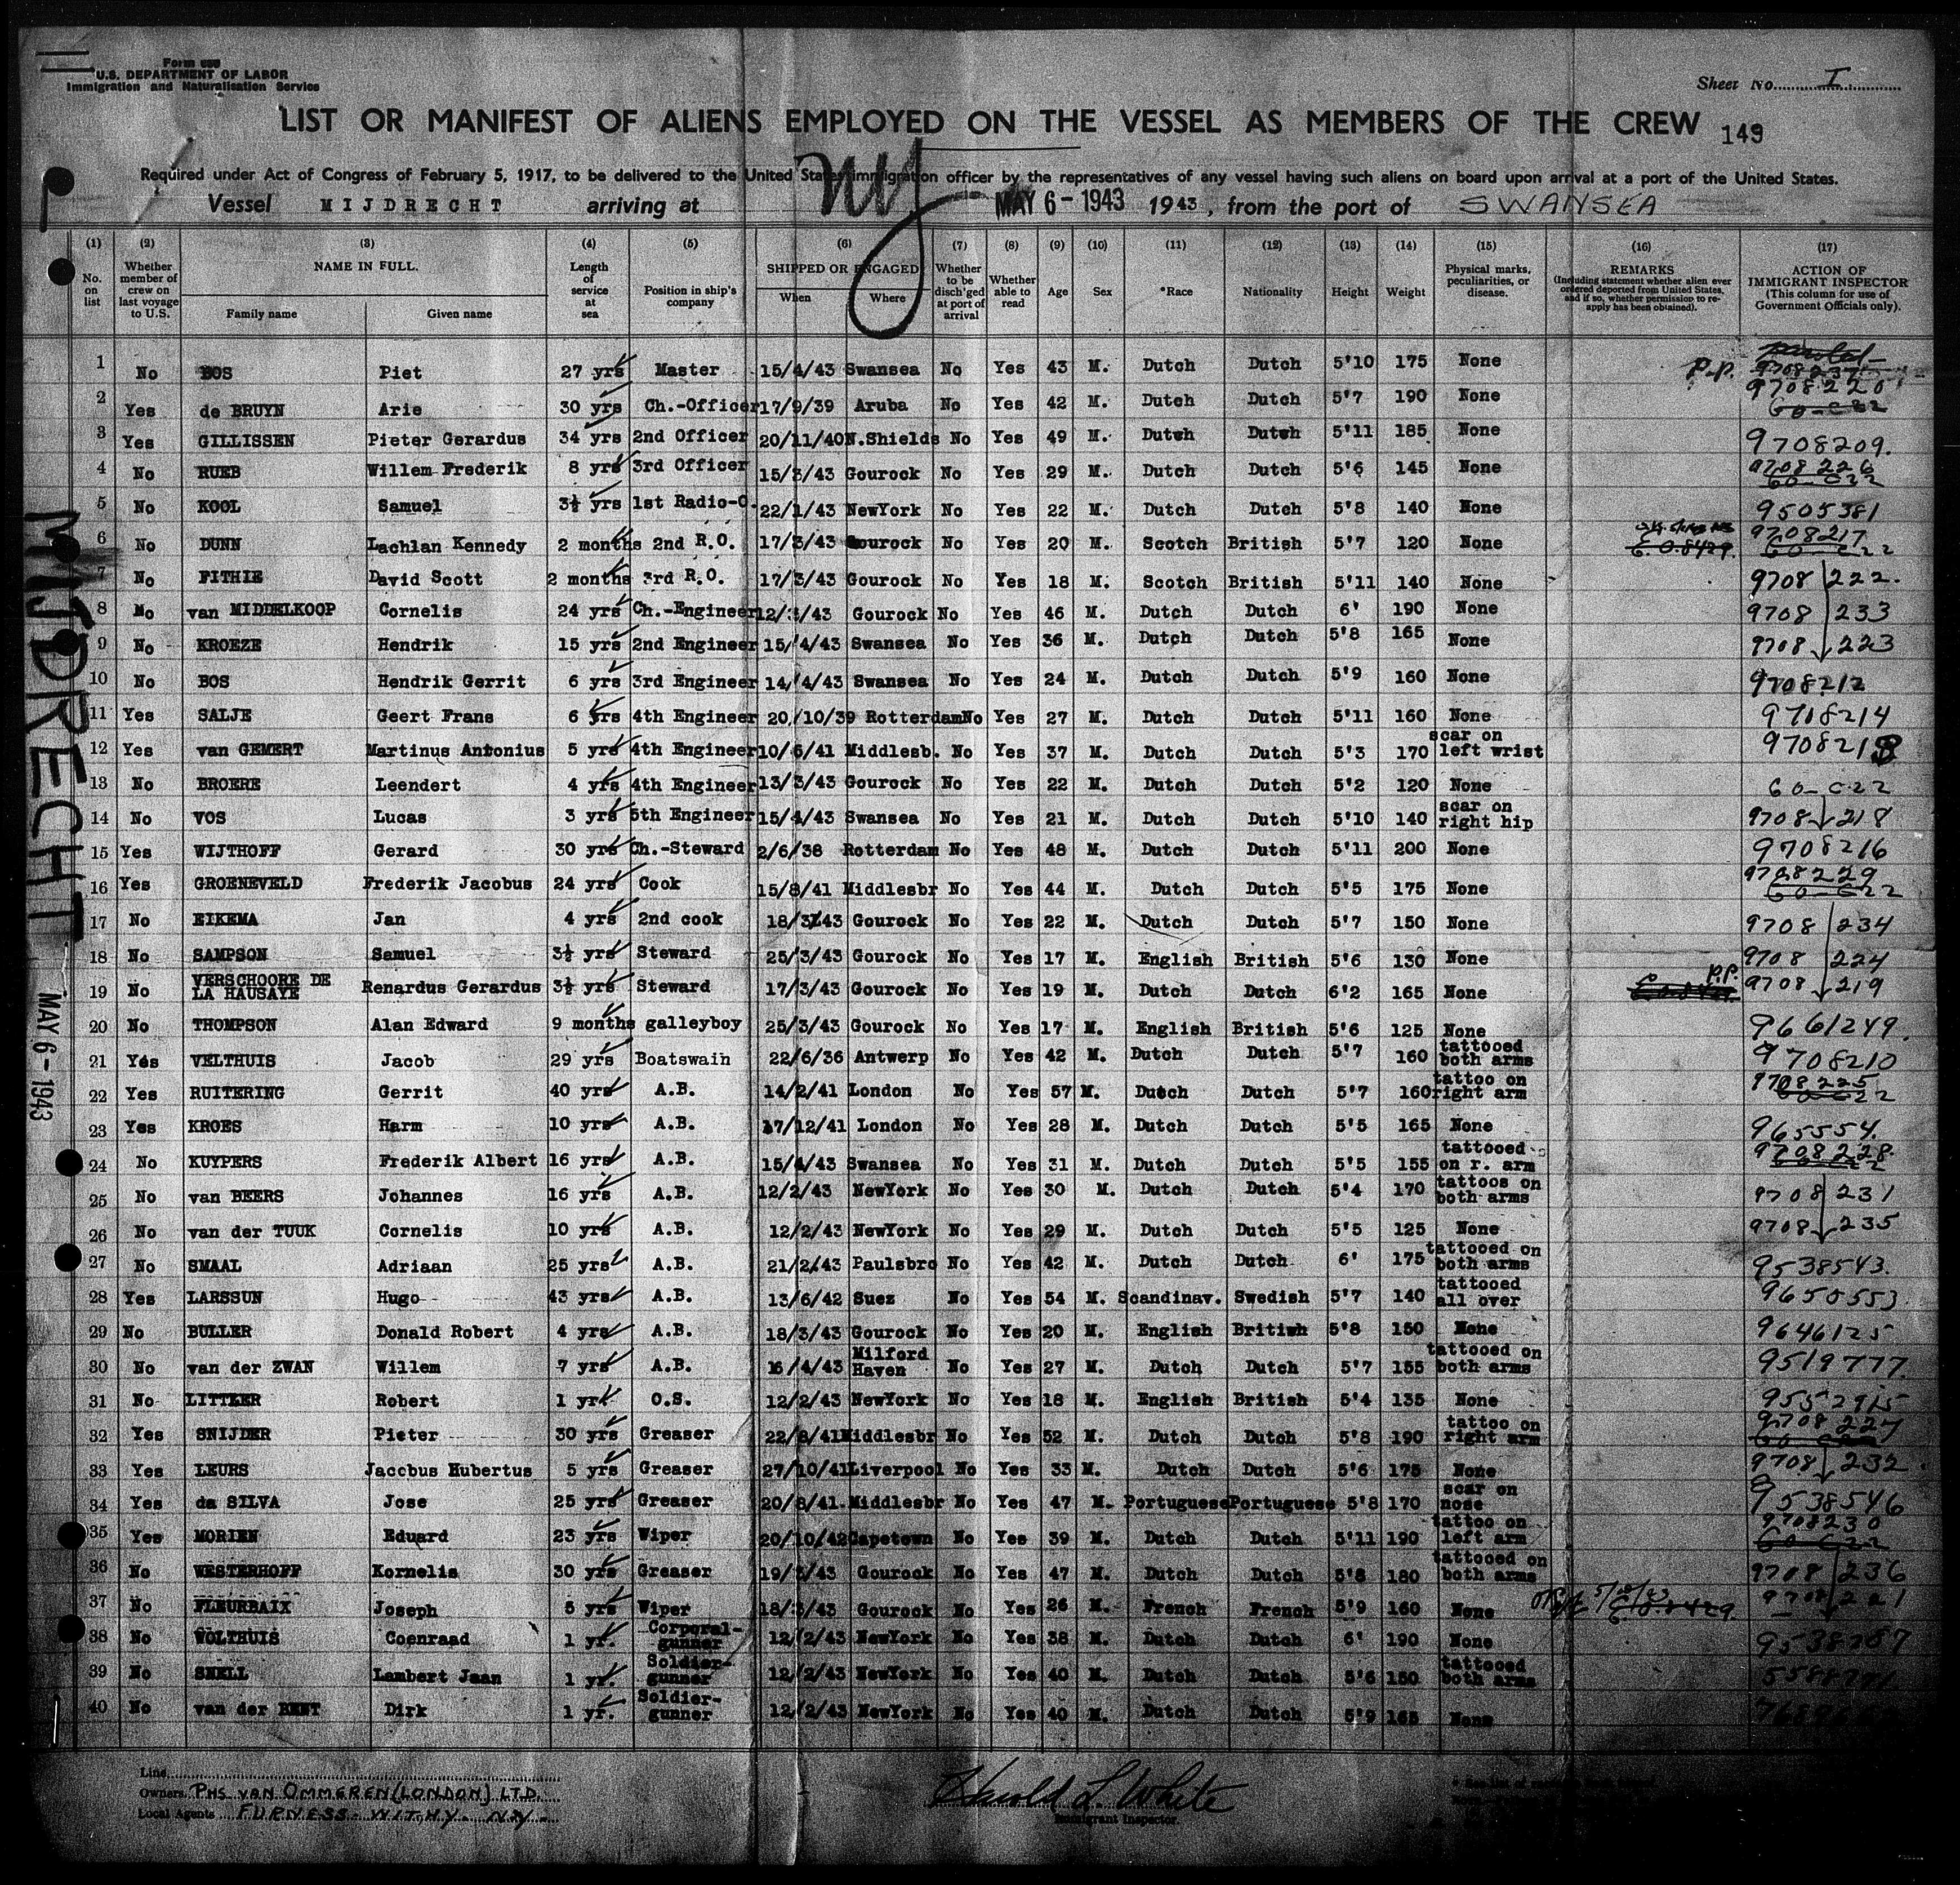 Form 689
U.S. DEPARTMENT OF LABOR
Immigration and Naturalisation Service
Sheet No. I
LIST OR MANIFEST OF ALIENS EMPLOYED ON THE VESSEL AS MEMBERS OF THE CREW 149
Required under Act of Congress of February 5, 1917, to be delivered to the United States immigration officer by the representatives of any vessel having such aliens on board upon arrival at a port of the United States.
Vessel MIJDRECHT arriving at NY MAY 6 - 1943 1943, from the port of SWANSEA
(1) (2) (3) (4) (5) (6) (7) (8) (9) (10) (11) (12) (13) (14) (15) (16) (17)
No. on list | Whether member of crew on last voyage to U.S. | NAME IN FULL. Family name | Given name | Length of service at sea | Position in ship's company | SHIPPED OR ENGAGED When | Where | Whether to be disch'ged at port of arrival | Whether able to read | Age | Sex | *Race | Nationality | Height | Weight | Physical marks, peculiarities, or disease. | REMARKS (Including statement whether alien ever ordered deported from United States, and if so, whether permission to re-apply has been obtained). | ACTION OF IMMIGRANT INSPECTOR (This column for use of Government Officials only).
1 No BOS Piet 27 yrs Master 15/4/43 Swansea No Yes 43 M. Dutch Dutch 5'10 175 None P.P.
2 Yes de BRUYN Arie 30 yrs Ch.-Officer 17/9/39 Aruba No Yes 42 M. Dutch Dutch 5'7 190 None 9708220
3 Yes GILLISSEN Pieter Gerardus 34 yrs 2nd Officer 20/11/40 N.Shields No Yes 49 M. Dutch Dutch 5'11 185 None 9708209.
4 No RUEB Willem Frederik 8 yrs 3rd Officer 15/3/43 Gourock No Yes 29 M. Dutch Dutch 5'6 145 None 9708226
5 No KOOL Samuel 3½ yrs 1st Radio-O. 22/1/43 NewYork No Yes 22 M. Dutch Dutch 5'8 140 None 9505381
6 No DUNN Lachlan Kennedy 2 months 2nd R.O. 17/3/43 Gourock No Yes 20 M. Scotch British 5'7 120 None 9708217
7 No FITHIE David Scott 2 months 3rd R.O. 17/3/43 Gourock No Yes 18 M. Scotch British 5'11 140 None 9708 222.
8 No van MIDDELKOOP Cornelis 24 yrs Ch.-Engineer 12/3/43 Gourock No Yes 46 M. Dutch Dutch 6' 190 None 9708 233
9 No KROEZE Hendrik 15 yrs 2nd Engineer 15/4/43 Swansea No Yes 36 M. Dutch Dutch 5'8 165 None 9708 223
10 No BOS Hendrik Gerrit 6 yrs 3rd Engineer 14/4/43 Swansea No Yes 24 M. Dutch Dutch 5'9 160 None 9708212
11 Yes SALJE Geert Frans 6 yrs 4th Engineer 20/10/39 Rotterdam No Yes 27 M. Dutch Dutch 5'11 160 None 9708214
12 Yes van GEMERT Martinus Antonius 5 yrs 4th Engineer 10/6/41 Middlesb. No Yes 37 M. Dutch Dutch 5'3 170 scar on left wrist 9708213
13 No BROERE Leendert 4 yrs 4th Engineer 13/3/43 Gourock No Yes 22 M. Dutch Dutch 5'2 120 None 60-C22
14 No VOS Lucas 3 yrs 5th Engineer 15/4/43 Swansea No Yes 21 M. Dutch Dutch 5'10 140 scar on right hip 9708 218
15 Yes WIJTHOFF Gerard 30 yrs Ch.-Steward 2/6/38 Rotterdam No Yes 48 M. Dutch Dutch 5'11 200 None 9708216
16 Yes GROENEVELD Frederik Jacobus 24 yrs Cook 15/8/41 Middlesbr No Yes 44 M. Dutch Dutch 5'5 175 None 9708229
17 No EIKEMA Jan 4 yrs 2nd cook 18/3/43 Gourock No Yes 22 M. Dutch Dutch 5'7 150 None 9708 234
18 No SAMPSON Samuel 3½ yrs Steward 25/3/43 Gourock No Yes 17 M. English British 5'6 130 None 9708 224
19 No VERSCHOORE DE LA HAUSAYE Renardus Gerardus 3½ yrs Steward 17/3/43 Gourock No Yes 19 M. Dutch Dutch 6'2 165 None P.P. 9708 219
20 No THOMPSON Alan Edward 9 months galleyboy 25/3/43 Gourock No Yes 17 M. English British 5'6 125 None 9661249.
21 Yes VELTHUIS Jacob 29 yrs Boatswain 22/6/36 Antwerp No Yes 42 M. Dutch Dutch 5'7 160 tattooed both arms 9708210
22 Yes RUITERING Gerrit 40 yrs A.B. 14/2/41 London No Yes 57 M. Dutch Dutch 5'7 160 tattoo on right arm 9708225
23 Yes KROES Harm 10 yrs A.B. 17/12/41 London No Yes 28 M. Dutch Dutch 5'5 165 None 965554.
24 No KUYPERS Frederik Albert 16 yrs A.B. 15/4/43 Swansea No Yes 31 M. Dutch Dutch 5'5 155 tattooed on r. arm 9708228
25 No van BEERS Johannes 16 yrs A.B. 12/2/43 NewYork No Yes 30 M. Dutch Dutch 5'4 170 tattoos on both arms 9708 231
26 No van der TUUK Cornelis 10 yrs A.B. 12/2/43 NewYork No Yes 29 M. Dutch Dutch 5'5 125 None 9708 235
27 No SMAAL Adriaan 25 yrs A.B. 21/2/43 Paulsbro No Yes 42 M. Dutch Dutch 6' 175 tattooed on both arms 9538543
28 Yes LARSSUN Hugo 43 yrs A.B. 13/6/42 Suez No Yes 54 M. Scandinav. Swedish 5'7 140 tattooed all over 9650553
29 No BULLER Donald Robert 4 yrs A.B. 18/3/43 Gourock No Yes 20 M. English British 5'8 150 None 9646125
30 No van der ZWAN Willem 7 yrs A.B. 16/4/43 Milford Haven No Yes 27 M. Dutch Dutch 5'7 155 tattooed on both arms 9519777.
31 No LITTLER Robert 1 yr O.S. 12/2/43 NewYork No Yes 18 M. English British 5'4 135 None 9552915
32 Yes SNIJDER Pieter 30 yrs Greaser 22/8/41 Middlesbr No Yes 52 M. Dutch Dutch 5'8 190 tattoo on right arm 9708227
33 Yes LEURS Jacobus Hubertus 5 yrs Greaser 27/10/41 Liverpool No Yes 33 M. Dutch Dutch 5'6 175 None 9708 232
34 Yes da SILVA Jose 25 yrs Greaser 20/8/41. Middlesbr No Yes 47 M. Portuguese Portuguese 5'8 170 scar on nose 9538546
35 Yes MORIEN Eduard 23 yrs Wiper 20/10/42 Capetown No Yes 39 M. Dutch Dutch 5'11 190 tattoo on left arm 9708230
36 No WESTERHOFF Kornelis 30 yrs Greaser 19/3/43 Gourock No Yes 47 M. Dutch Dutch 5'8 180 tattooed on both arms 9708 236
37 No FLEURBAIX Joseph 5 yrs Wiper 18/3/43 Gourock No Yes 26 M. French French 5'9 160 None 9708 221
38 No WOLTHUIS Coenraad 1 yr. Corporal-gunner 12/2/43 NewYork No Yes 38 M. Dutch Dutch 6' 190 None
39 No SNELL Lambert Jaan 1 yr. Soldier-gunner 12/2/43 NewYork No Yes 40 M. Dutch Dutch 5'6 150 tattooed both arms
40 No van der BENT Dirk 1 yr. Soldier-gunner 12/2/43 NewYork No Yes 40 M. Dutch Dutch 5'9 165 None
MIJDRECHT MAY 6 - 1943
Line
Owners PHS VAN OMMEREN (LONDON) LTD.
Local Agents FURNESS-WITHY. NY.
Harold L. White
Immigrant Inspector.